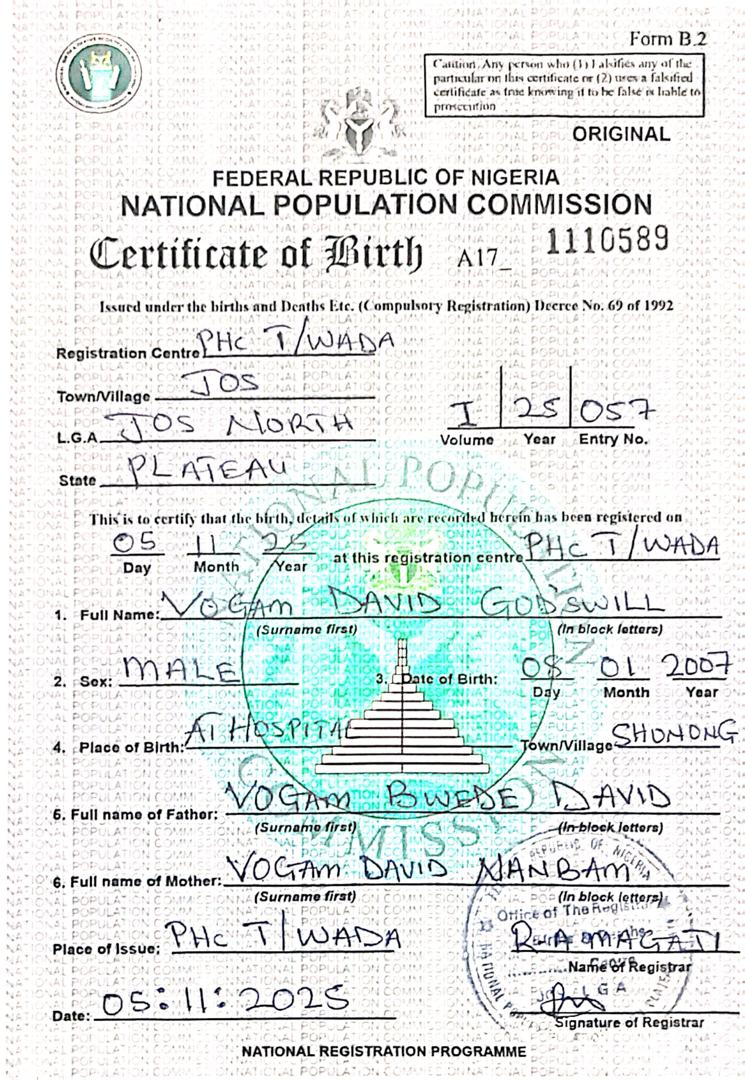 Form B.2
Caution. Any person who (1) falsifies any of the
particular on this certificate or (2) uses a falsified
certificate as true knowing it to be false is liable to
prosecution
ORIGINAL
FEDERAL REPUBLIC OF NIGERIA
NATIONAL POPULATION COMMISSION
Certificate of Birth A17_ 1110589
Issued under the births and Deaths Etc. (Compulsory Registration) Decree No. 69 of 1992
Registration Centre PHC T/WADA
Town/Village JOS
L.G.A. JOS NORTH
I 25 057
Volume Year Entry No.
State PLATEAU
This is to certify that the birth, details of which are recorded herein has been registered on
05 11 25 at this registration centre PHC T/WADA
Day Month Year
1. Full Name: VOGAM DAVID GODSWILL
(Surname first) (In block letters)
2. Sex: MALE 3. Date of Birth: 08 01 2007
Day Month Year
4. Place of Birth: AT HOSPITAL Town/Village SHONONG
5. Full name of Father: VOGAM BWEDE DAVID
(Surname first) (In block letters)
6. Full name of Mother: VOGAM DAVID NANBAM
(Surname first) (In block letters)
Place of Issue: PHC T/WADA
Name of Registrar
Date: 05:11:2025
Signature of Registrar
NATIONAL REGISTRATION PROGRAMME
NATIONAL POPULATION COMMISSION